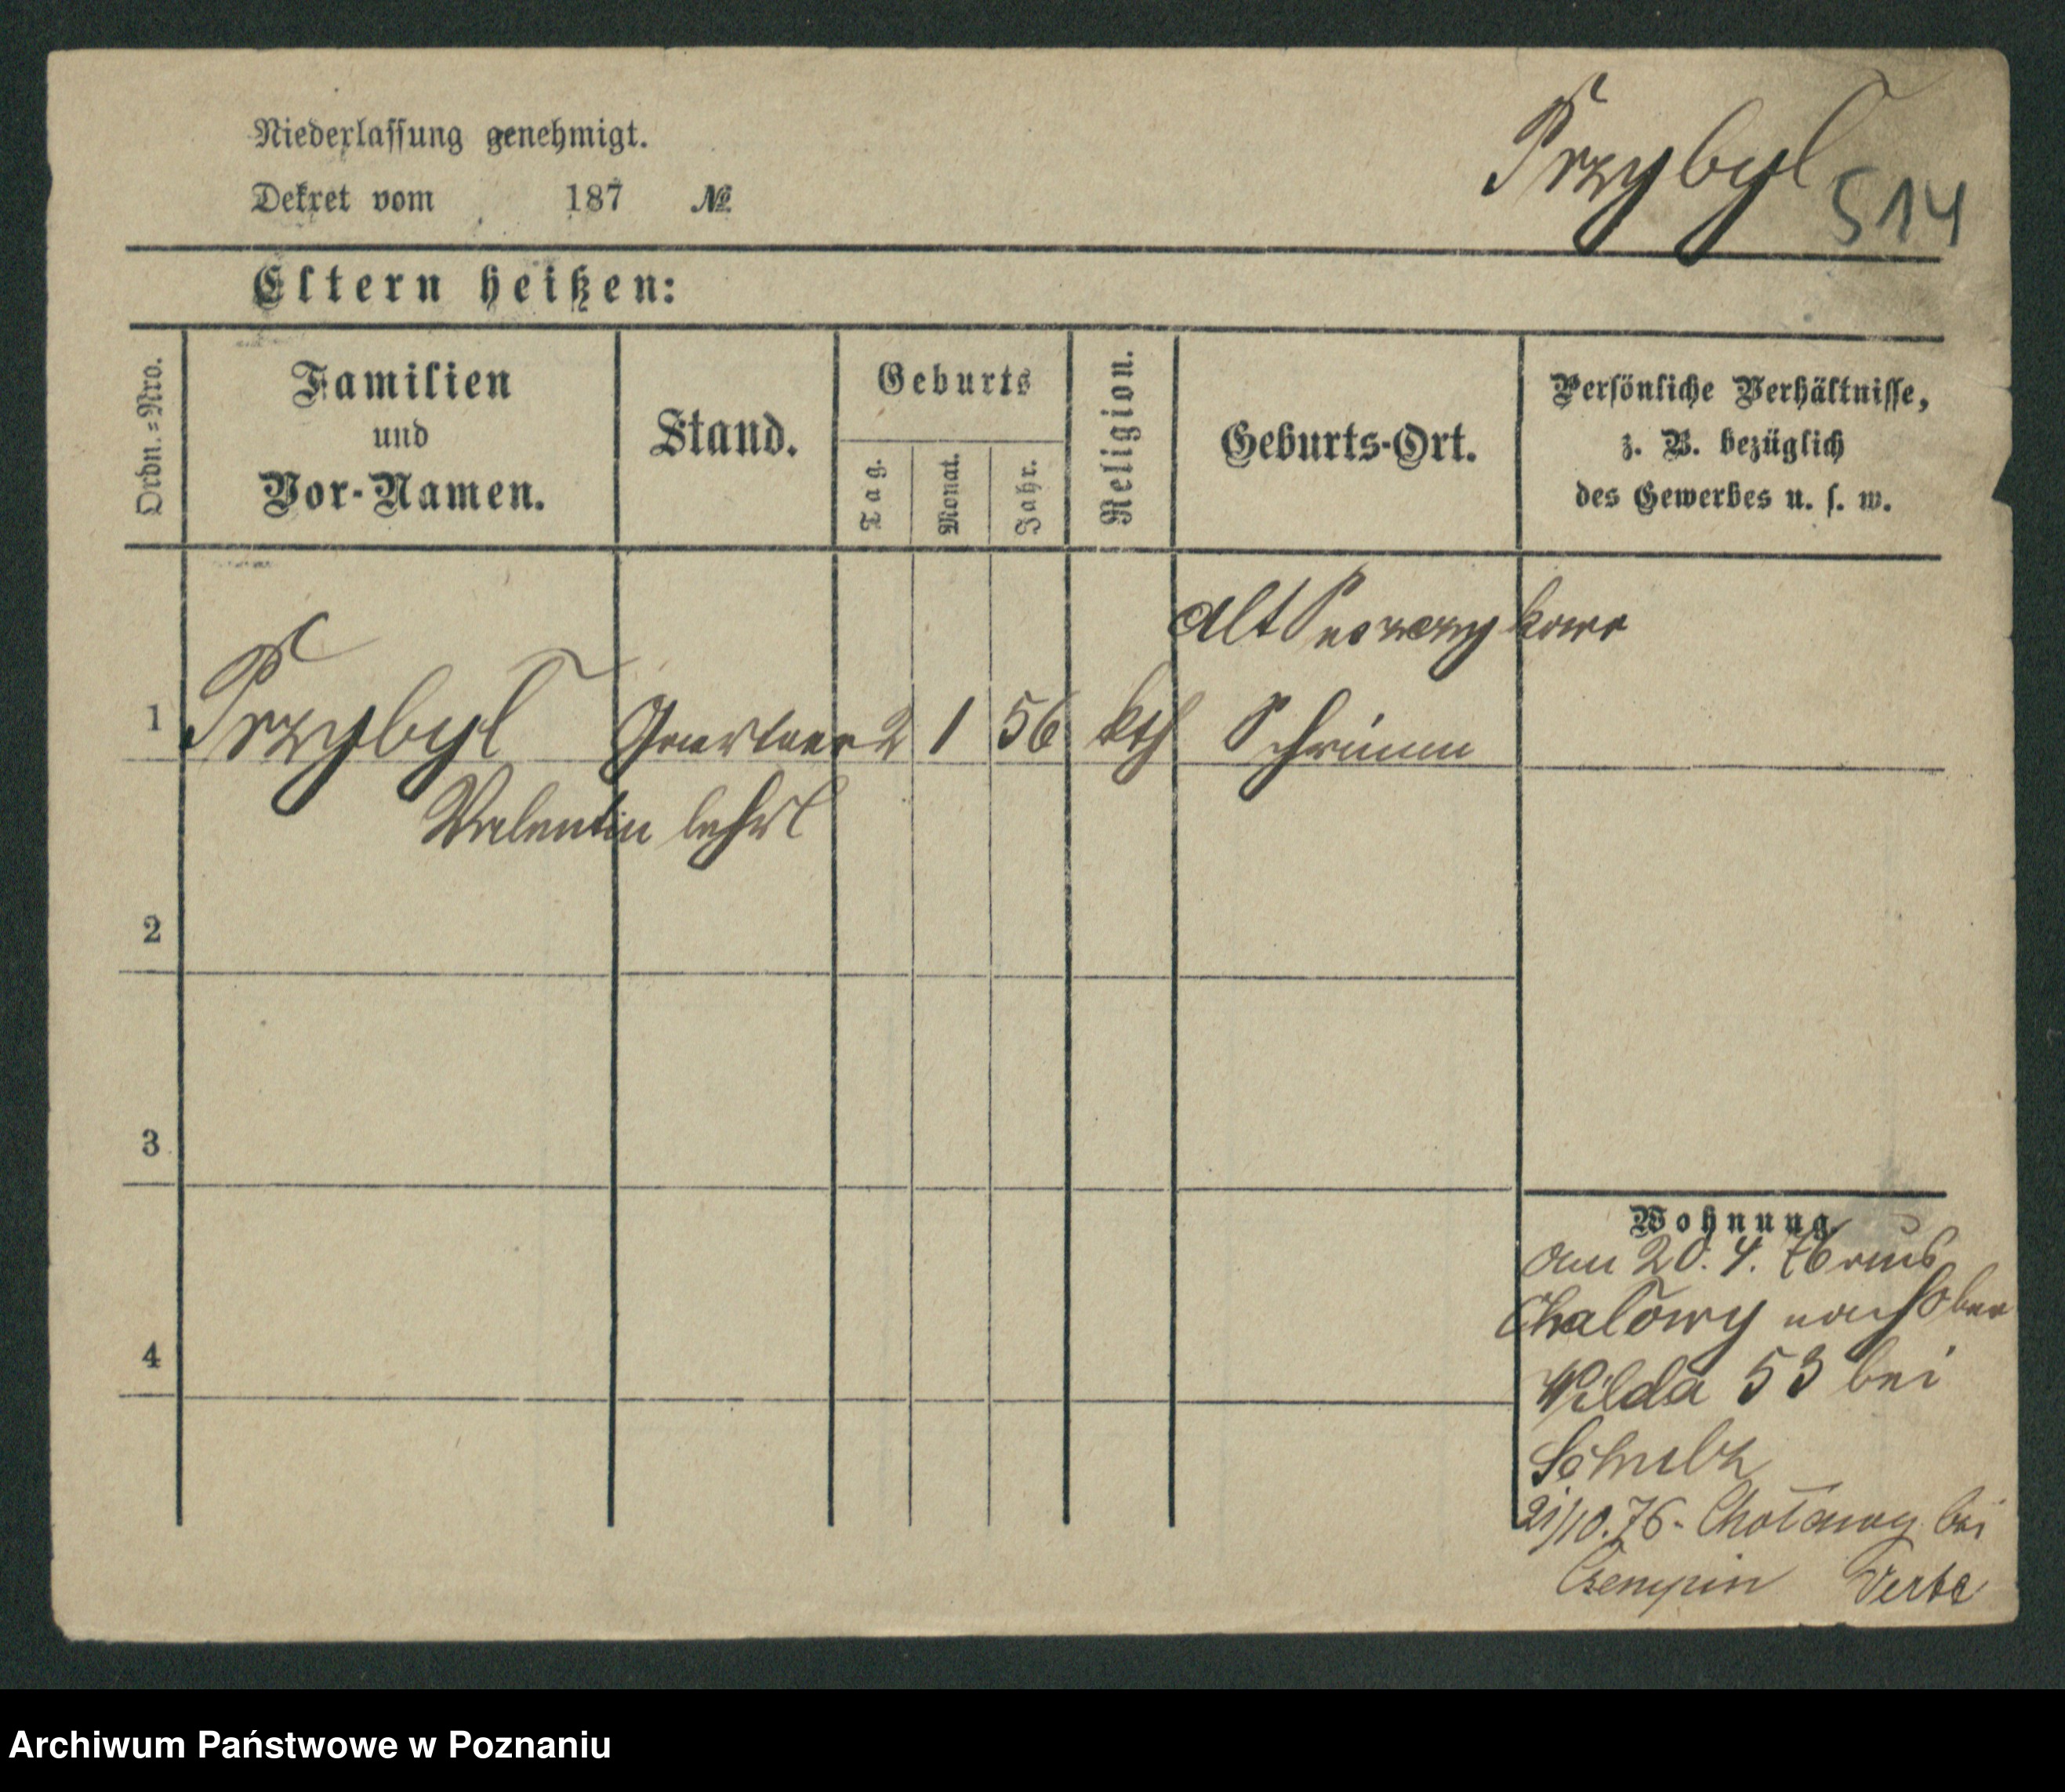 Przybyl
514
Niederlassung genehmigt.
Dekret vom 187 №
Eltern heißen:
Ordn.=Nro.
Familien
und
Vor-Namen.
Stand.
Geburts
Tag.
Monat.
Jahr.
Religion.
Geburts-Ort.
Persönliche Verhältnisse,
z. B. bezüglich
des Gewerbes u. s. w.
Alt
1 Przybyl Gaertner 2 1 56 kth Schrimm
Valentin lehrl
2
3
4
Wohnung.
am 20. 4. 76 aus
nach Ober
Wilda 53 bei
Schulz
21/10. 76 - bei
Czempin
Archiwum Państwowe w Poznaniu